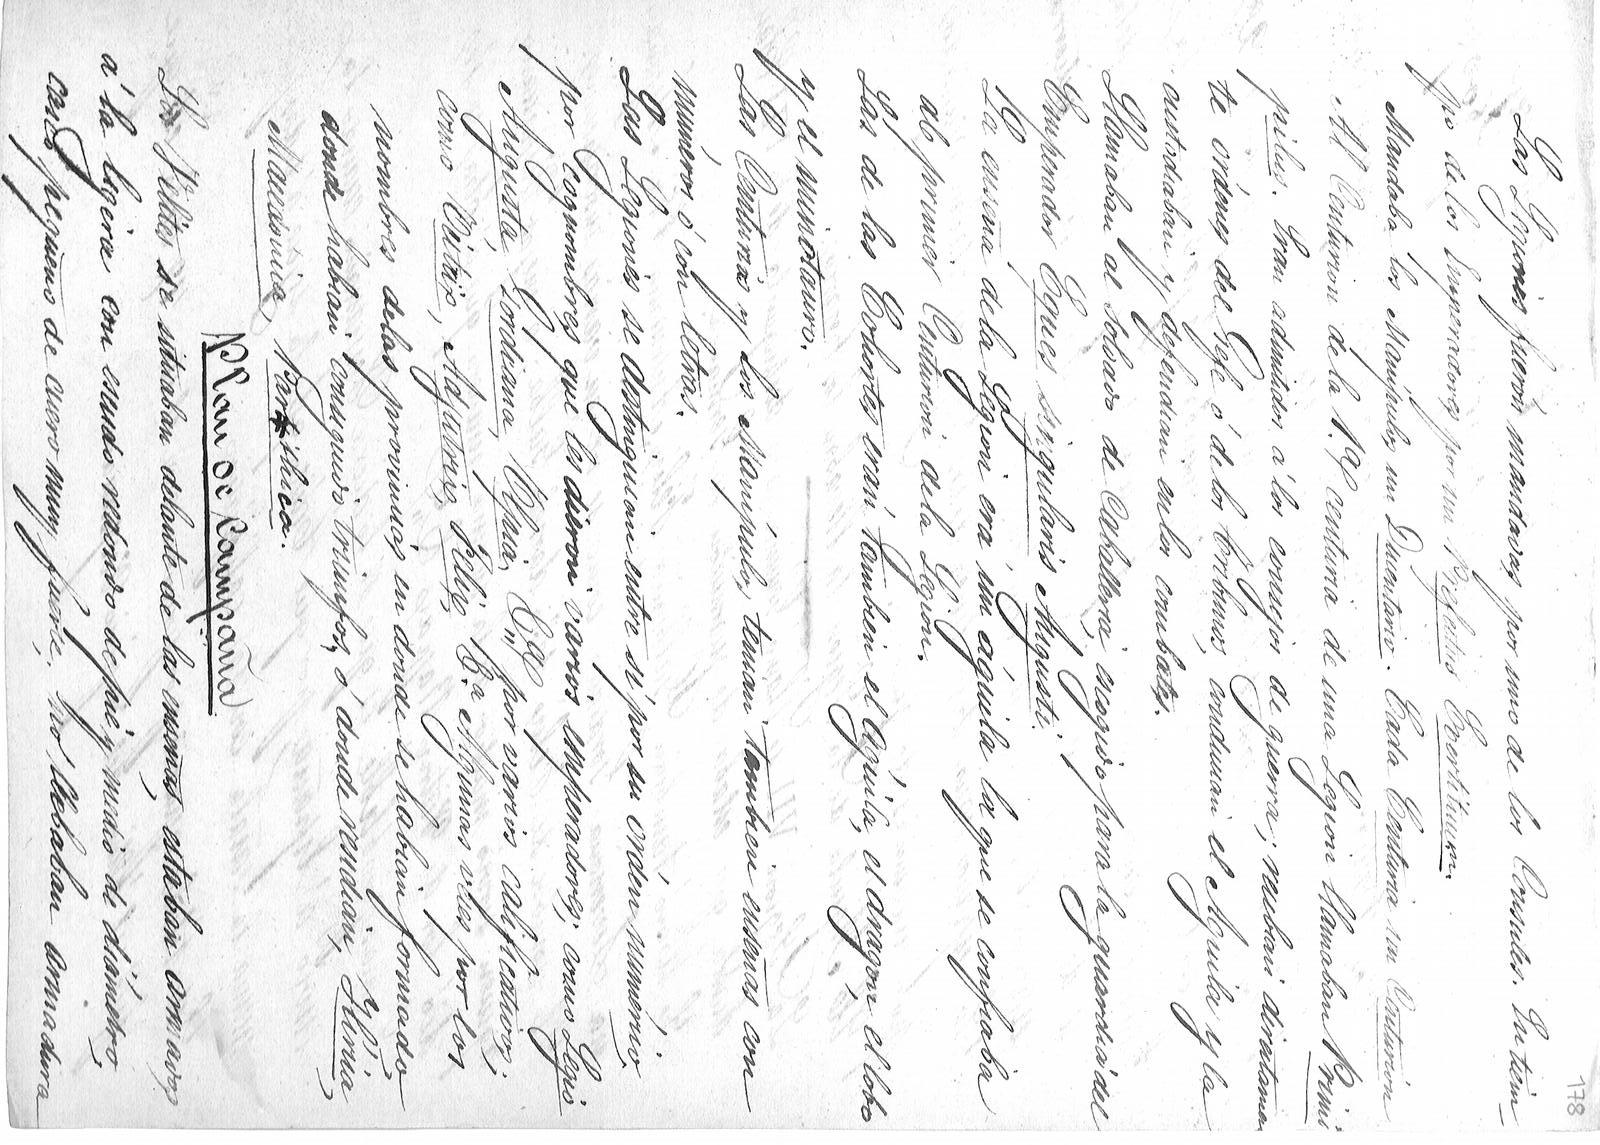 178
Las Legiones fueron mandadas por uno de los Consules. En tiem
po de los Emperadores por un Prefectus
Mandaba los Manípulos un Ducentario. Cada Centuria un Centurion
Al Centurion de la 1ª centuria de una Legion llamaban Primi
pilus. Eran admitidos á los consejos de guerra; recibian directamen
te ordenes del Gefe ó de los Tribunos, conducian el Aguila y la
custodiaban y defendian en los combates.
Llamaban al soldado de Caballeria escogido para la guardia del
Emperador Eques Singularis Augusti.
La enseña de la Legion era un águila la que se confiaba
al primer Centurion de la Legion.
Las de las Cohortes eran tambien el Aguila, el dragon el lobo
y el minotauro.
Las Centurias y los Manípulos tenian tambien enseñas con
números ó con letras.
Las Legiones se distinguian entre sí por su orden numerico,
por cognombres que les dieron varios emperadores; como Legio
Augusta, Gordiana, Ulpia, por varios calificativos;
como Victrix, Adjutrix, Felix, Algunas veces por los
nombres de las provincias en donde se habian formado
donde habian conseguido triunfos, ó donde residian, Iliria,
Macedonica, Parthica.
Plan de Campaña
Los Velites se situaban delante de las mismas estaban armados
á la ligera con escudo redondo de pié y medio de diámetro,
casco pequeño de cuero muy fuerte, no llebaban armadura